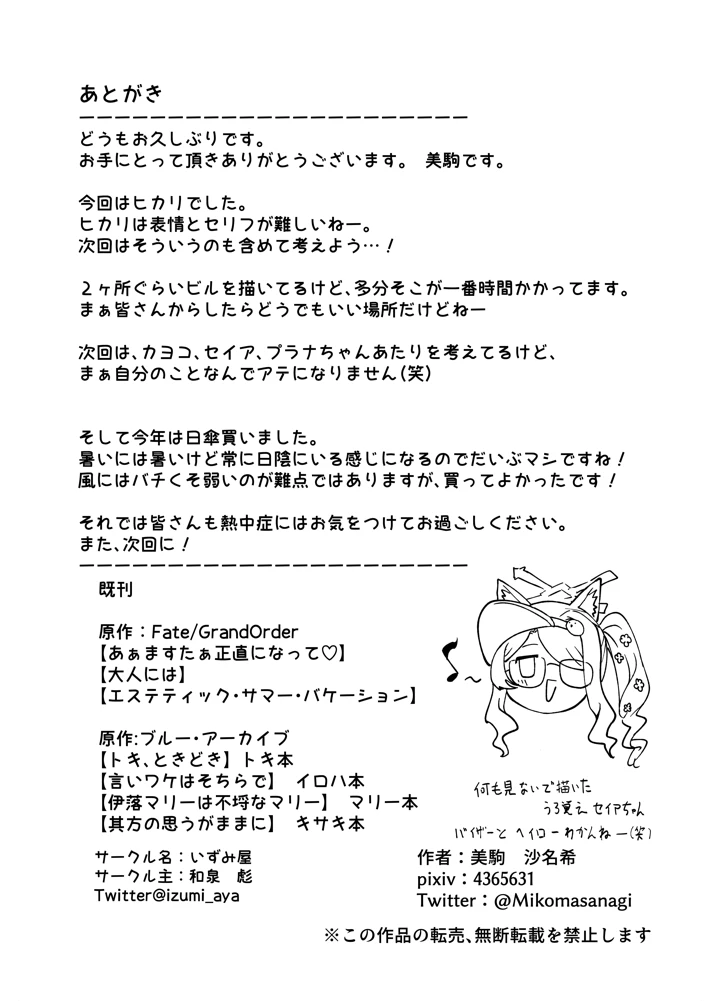 あとがき
ーーーーーーーーーーーーーーーーーーーーーー
どうもお久しぶりです。
お手にとって頂きありがとうございます。　美駒です。
今回はヒカリでした。
ヒカリは表情とセリフが難しいねー。
次回はそういうのも含めて考えよう…！
２ヶ所ぐらいビルを描いてるけど、多分そこが一番時間かかってます。
まぁ皆さんからしたらどうでもいい場所だけどねー
次回は、カヨコ、セイア、プラナちゃんあたりを考えてるけど、
まぁ自分のことなんでアテになりません（笑）
そして今年は日傘買いました。
暑いには暑いけど常に日陰にいる感じになるのでだいぶマシですね！
風にはバチくそ弱いのが難点ではありますが、買ってよかったです！
それでは皆さんも熱中症にはお気をつけてお過ごしください。
また、次回に！
ーーーーーーーーーーーーーーーーーーーーーー
既刊
原作：Fate/GrandOrder
【あぁますたぁ正直になって♡】
【大人には】
【エステティック・サマー・バケーション】
原作:ブルー・アーカイブ
【トキ、ときどき】トキ本
【言いワケはそちらで】　イロハ本
【伊落マリーは不埒なマリー】　マリー本
【其方の思うがままに】　キサキ本
何も見ないで描いた
うろ覚え セイアちゃん
バイザーと ヘイロー わかんねー(笑)
サークル名：いずみ屋
サークル主：和泉　彪
Twitter@izumi_aya
作者：美駒　沙名希
pixiv：4365631
Twitter：@Mikomasanagi
※この作品の転売、無断転載を禁止します